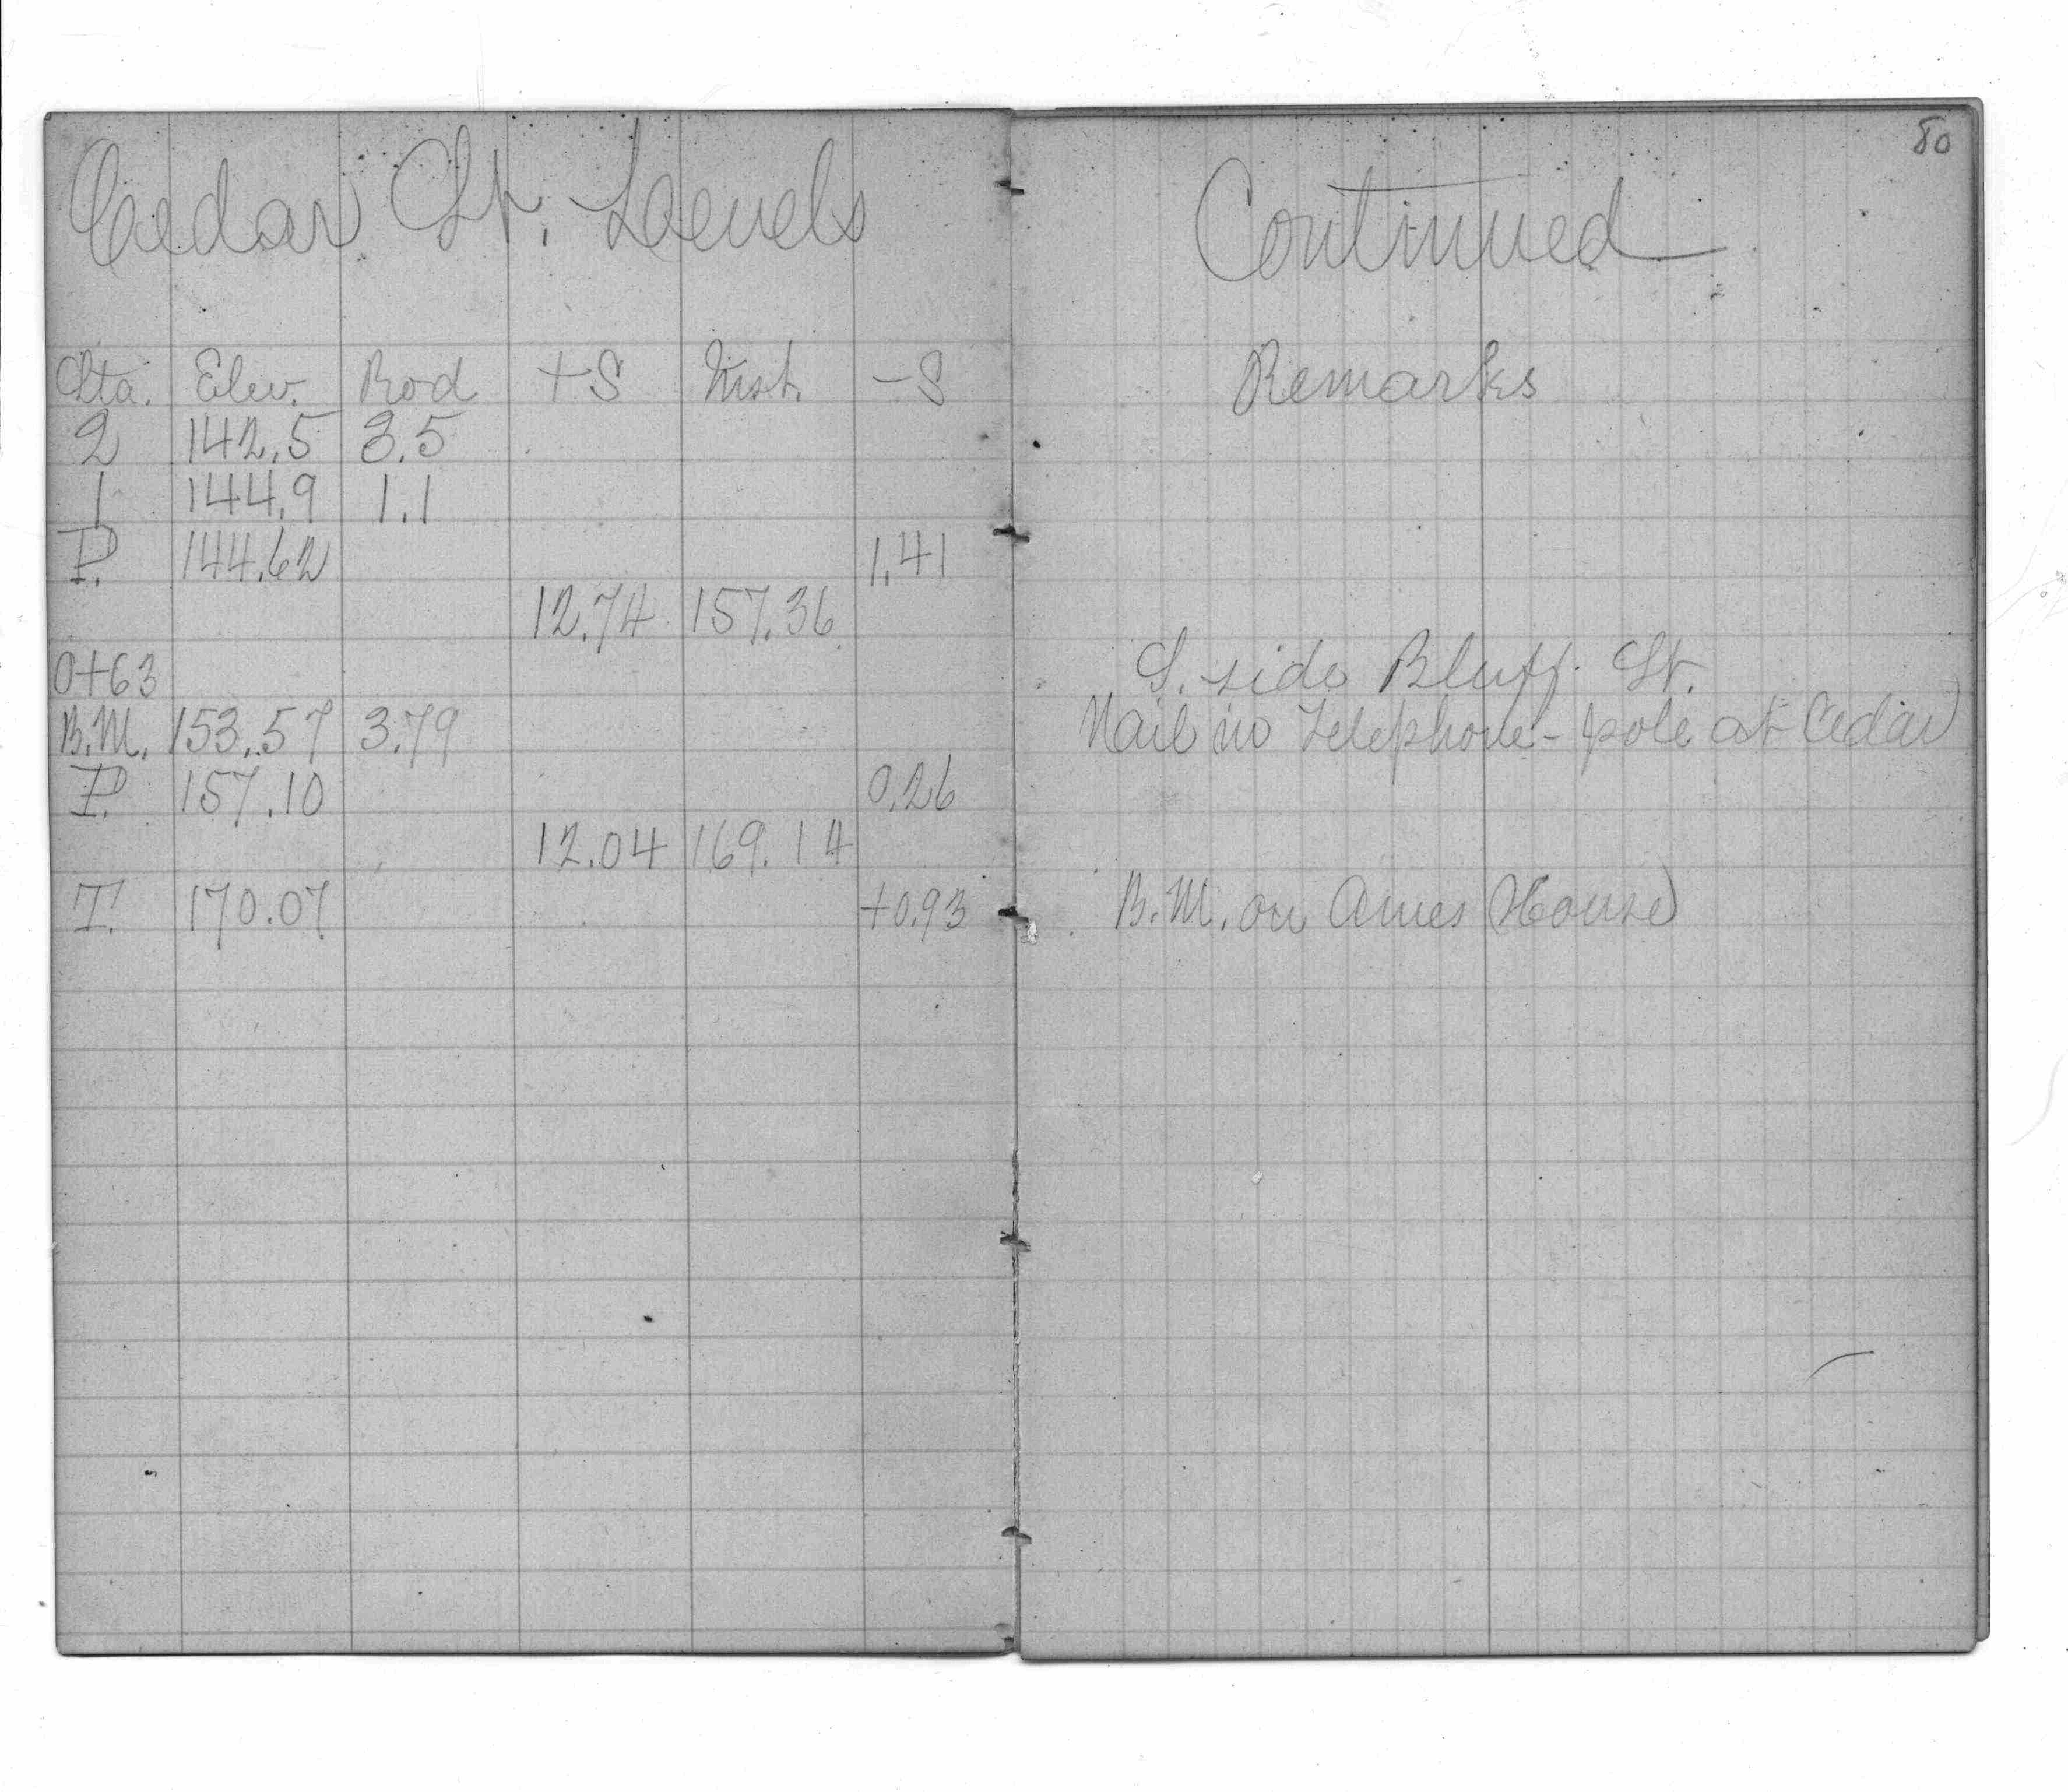 80
Cedar St. Levels Continued
Sta. Elev. Rod +S Inst. -S Remarks
2 142.5 3.5
1 144.9 1.1
P. 144.62 1.41
12.74 157.36
0+63 S. side Bluff St.
B.M. 153.57 3.79 Nail in Telephone-pole at Cedar
P. 157.10 0.26
12.04 169.14
T. 170.07 +0.93 B.M. on Ames House